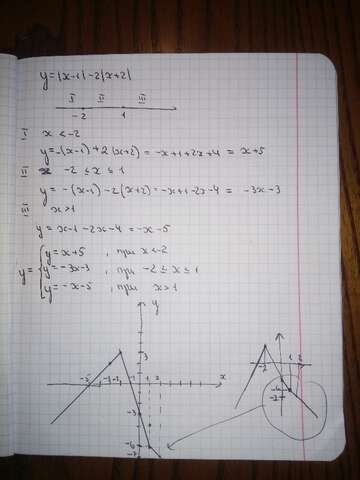 y=|x-1|-2|x+2|
I II III
-2 1
I x<-2
y=-(x-1)+2(x+2)=-x+1+2x+4=x+5
II -2≤x≤1
y=-(x-1)-2(x+2)=-x+1-2x-4=-3x-3
III x>1
y=x-1-2x-4=-x-5
y=
y=x+5, при x<-2
y=-3x-3, при -2≤x≤1
y=-x-5, при x>1
y
3
-5 -2 -1 1 2 x
-3
-6
-7
-2 1 2